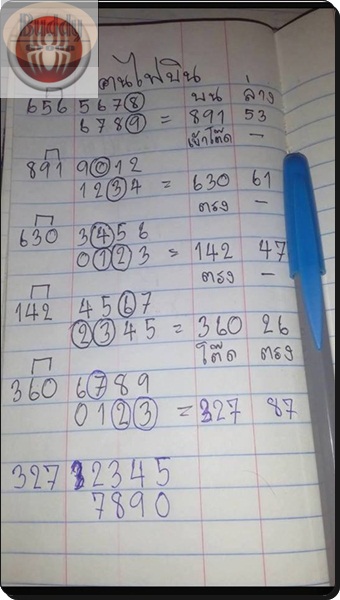 Buddy
คนไฟบิน
บน ล่าง
656 5678
6789 = 891 53
เข้าโต๊ด -
891 9012
1234 = 630 61
ตรง -
630 3456
0123 = 142 47
ตรง -
142 4567
2345 = 360 26
โต๊ด ตรง
360 6789
0123 = 327 87
327 12345
7890